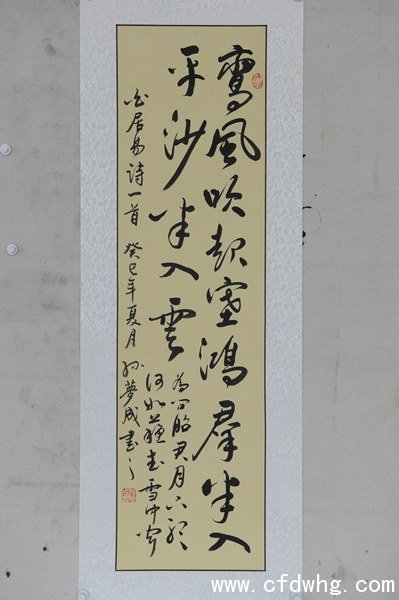 鸾風吹起塞鴻群半入
平沙半入雲
為問昭君月下聽
何如蘇武雪中聞
白居易詩一首 癸巳年夏月 孙夢成書之
www.cfdwhg.com